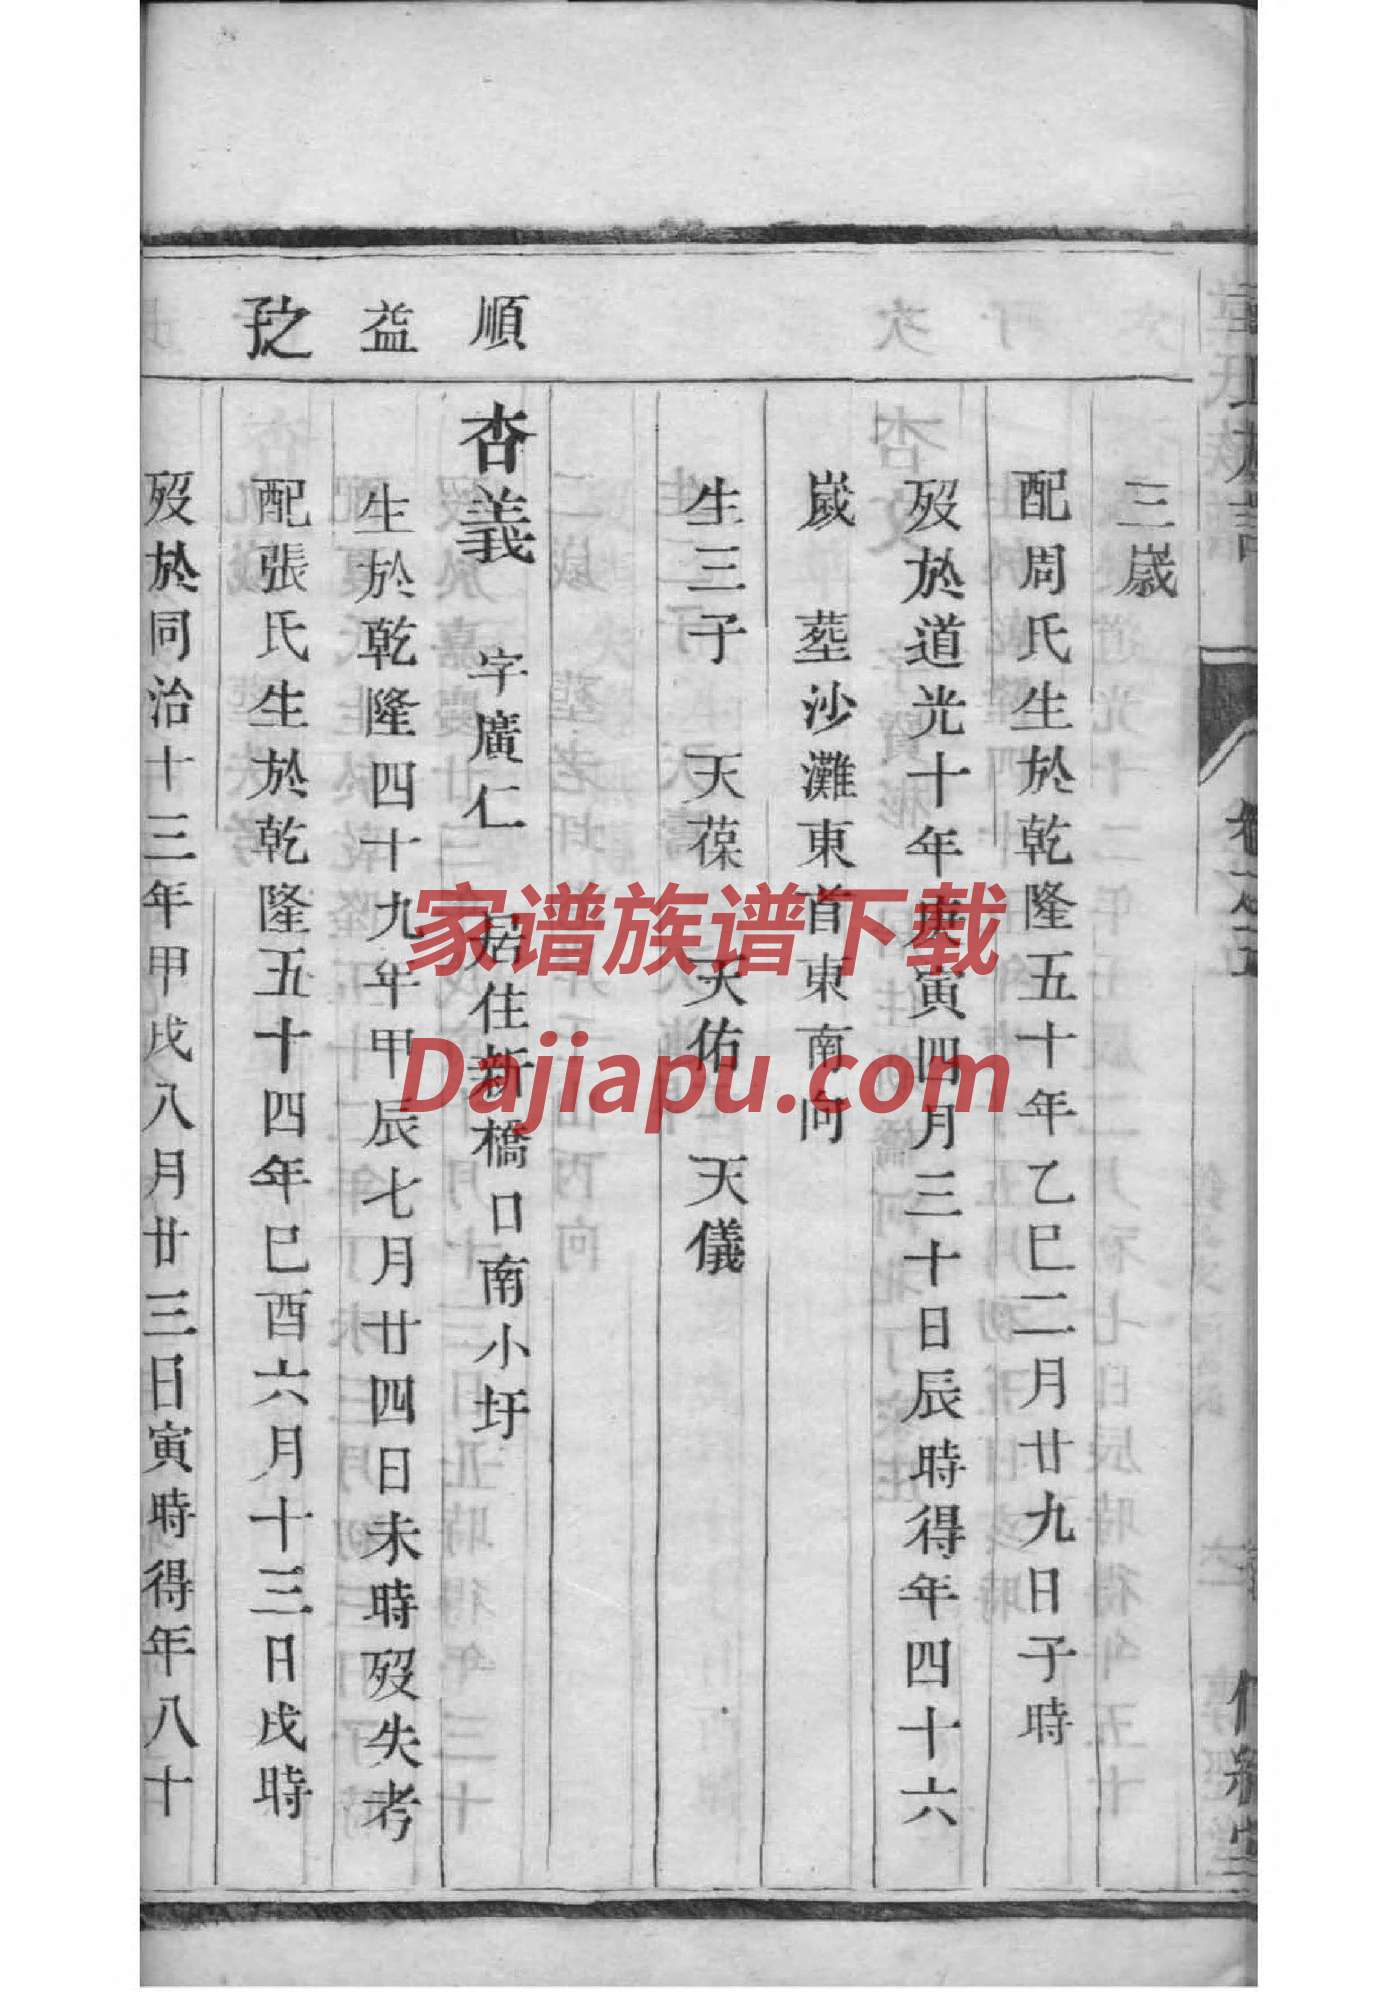 三歲
配周氏生於乾隆五十年乙巳二月廿九日子時
歿於道光十年庚寅四月三十日辰時得年四十六
嵗 葬沙灘東首東南向
生三子 天葆 天佑 天儀
順
益
之
杏義 字廣仁 居住新橋口南小圩
生於乾隆四十九年甲辰七月廿四日未時歿失考
配張氏生於乾隆五十四年巳酉六月十三日戌時
歿於同治十三年甲戌八月廿三日寅時得年八十
家谱族谱下载
Dajiapu.com